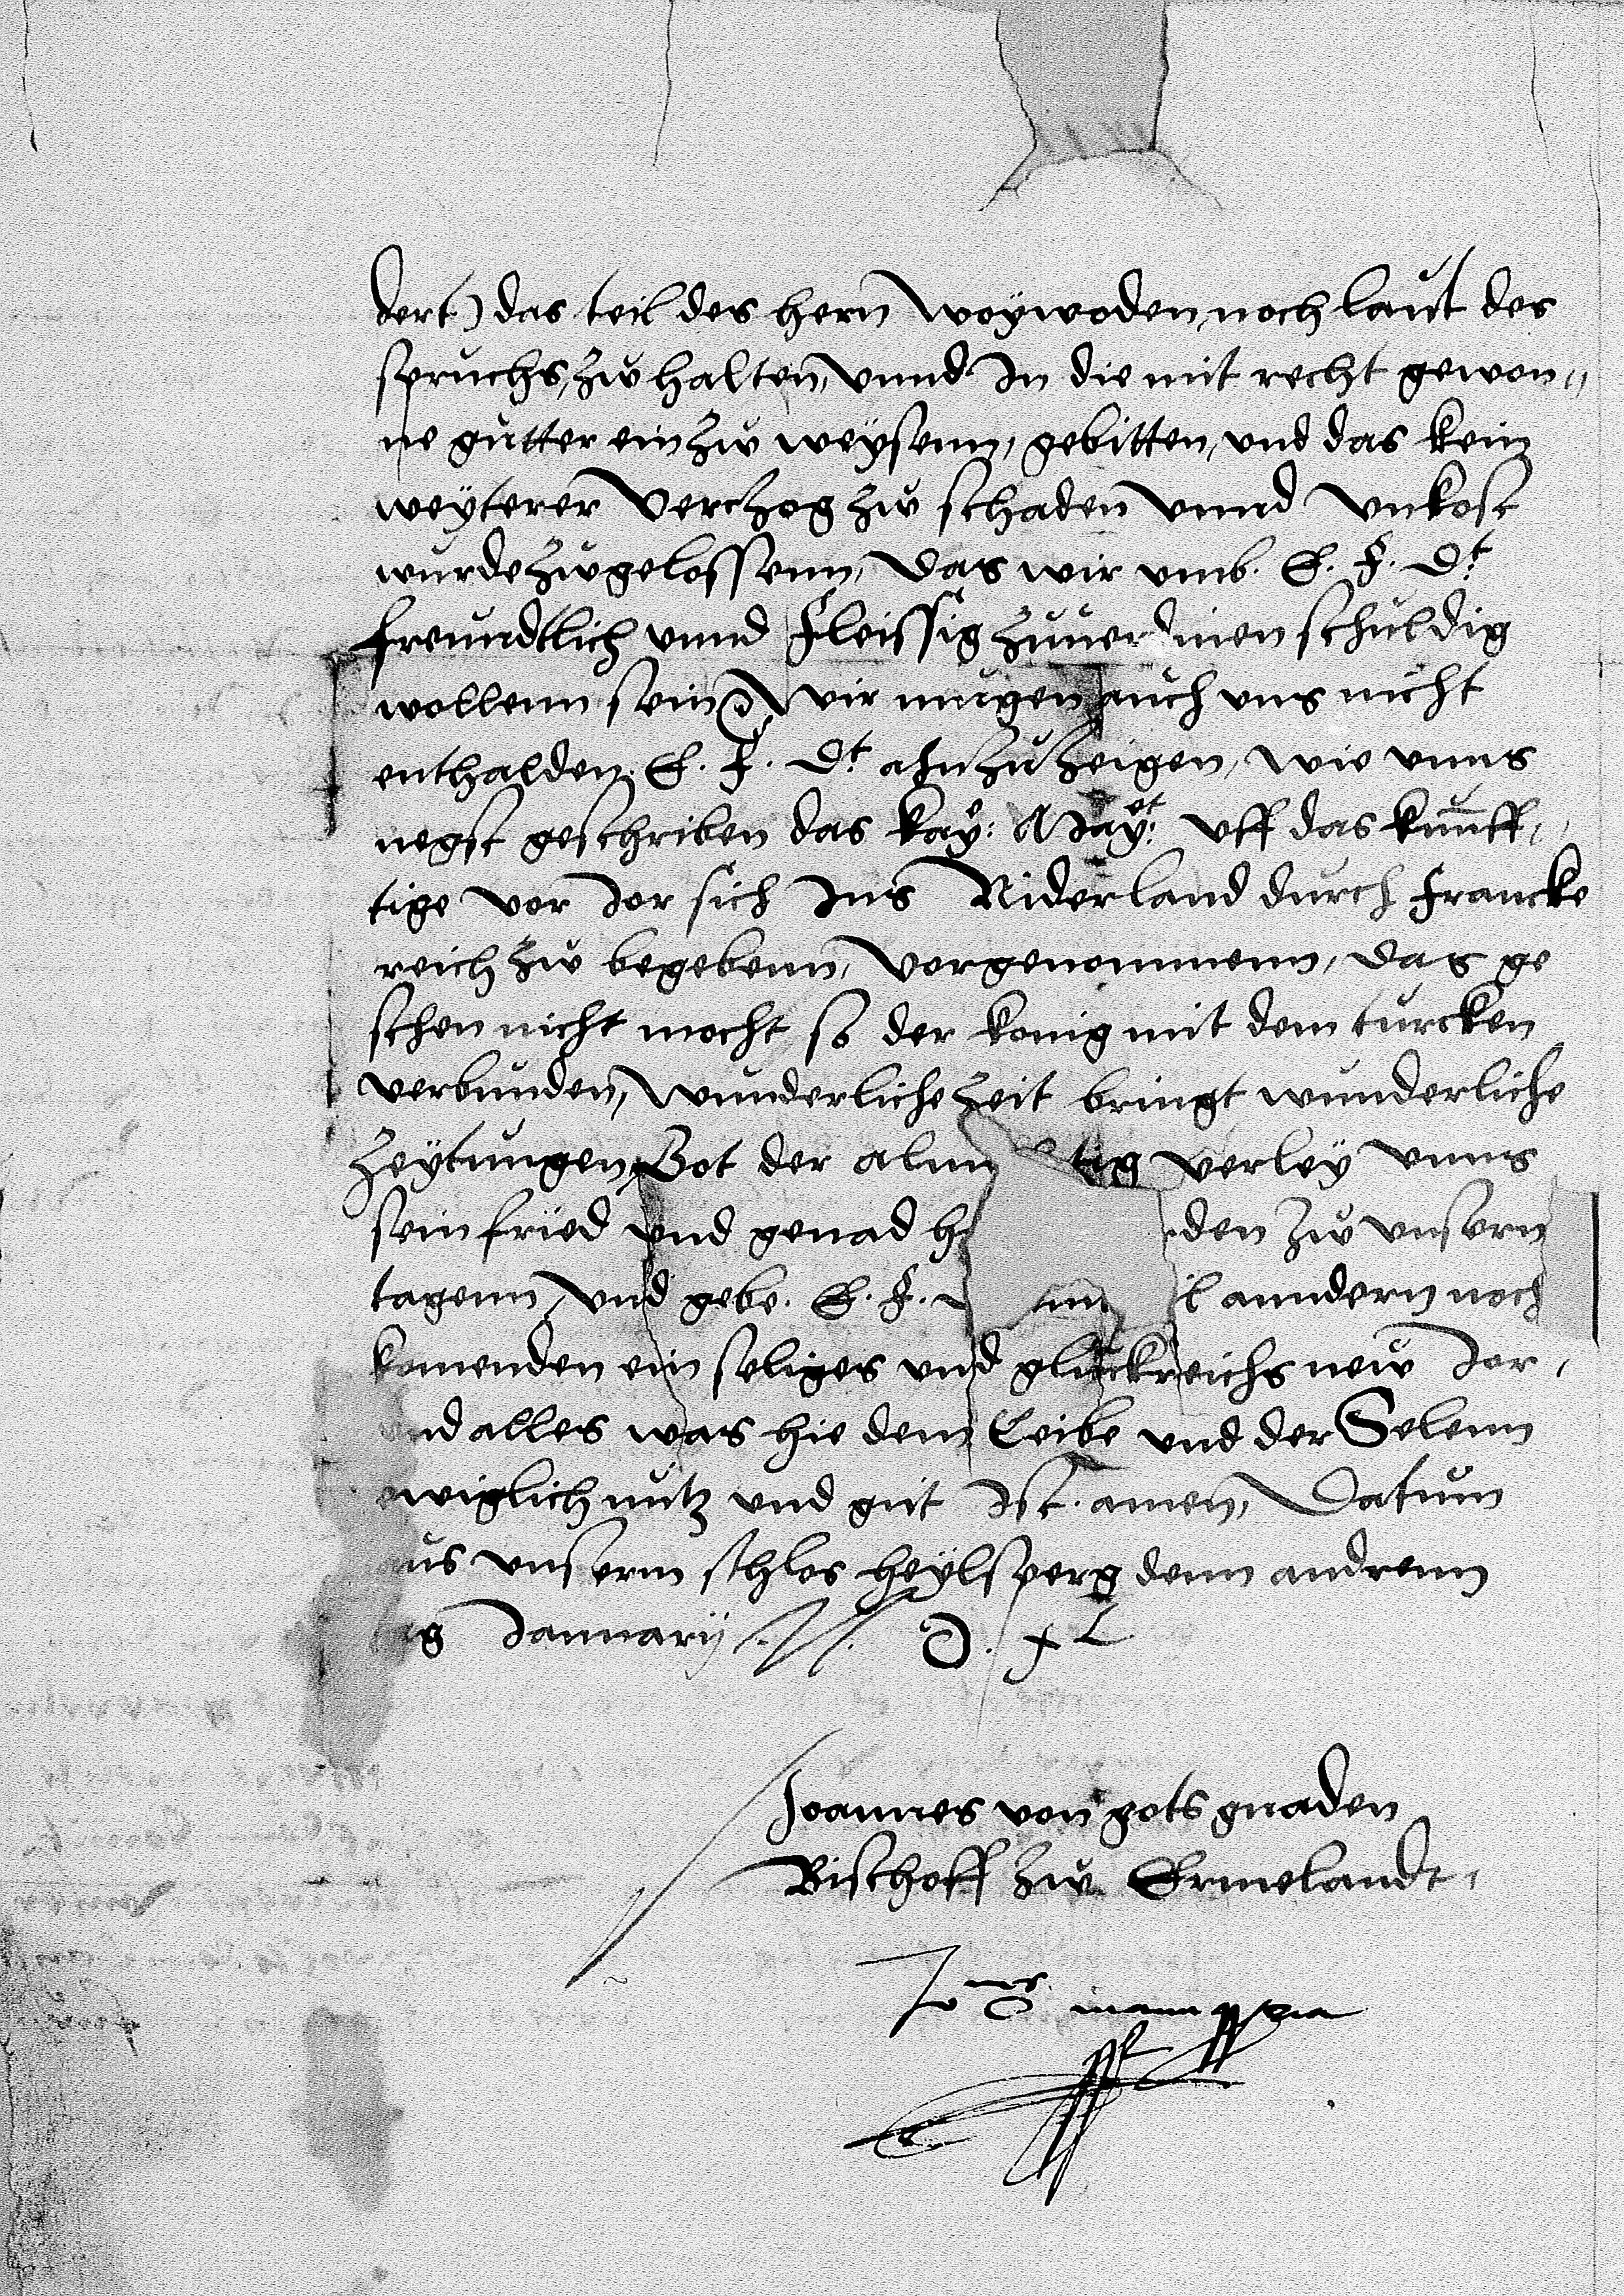 dert) das teil des hern Woywoden, noch laut des
spruchs, zw halten, vnnd In die mit recht gewon„
ne gutter ein zw weysenn, gebitten, vnd das kein
weyterer Verczog zw schaden vnnd vnkost
wurde zwgelossenn, Das wir vmb. E. F. Dt.
freundtlich vnnd Fleissig zuuerdinen schuldig
wollenn sein Wir mugen auch vns nicht
enthalden. E. F. Dt. ahnzuzeigen, wie vnns
negst geschriben das kay: May:et vff das kunff„
tige vor Jor sich Ins Niderland durch Francke
reich zw begebenn, Vorgenommenn, Das ge
schen nicht mocht so der konig mit dem turcken
verbunden, Wunderliche zeit bringt wunderliche
zeytungen, Got der alm tig verley vnns
sein fried vnd genad h den zw vnsern
tagenn, Vnd gebe. E. F. l anndern noch
komenden ein seliges vnd gluckreichs new Jor,
vnd alles was hie dem Leibe vnd der Selenn
ewiglich nutz vnd gut Ist. amen, Datum
aus vnserm schlos heylsperg denn andrenn
tag Januarij . M . D . xL
Joannes von gots gnaden
Bischoff zw Ermelandt,
manu ppria